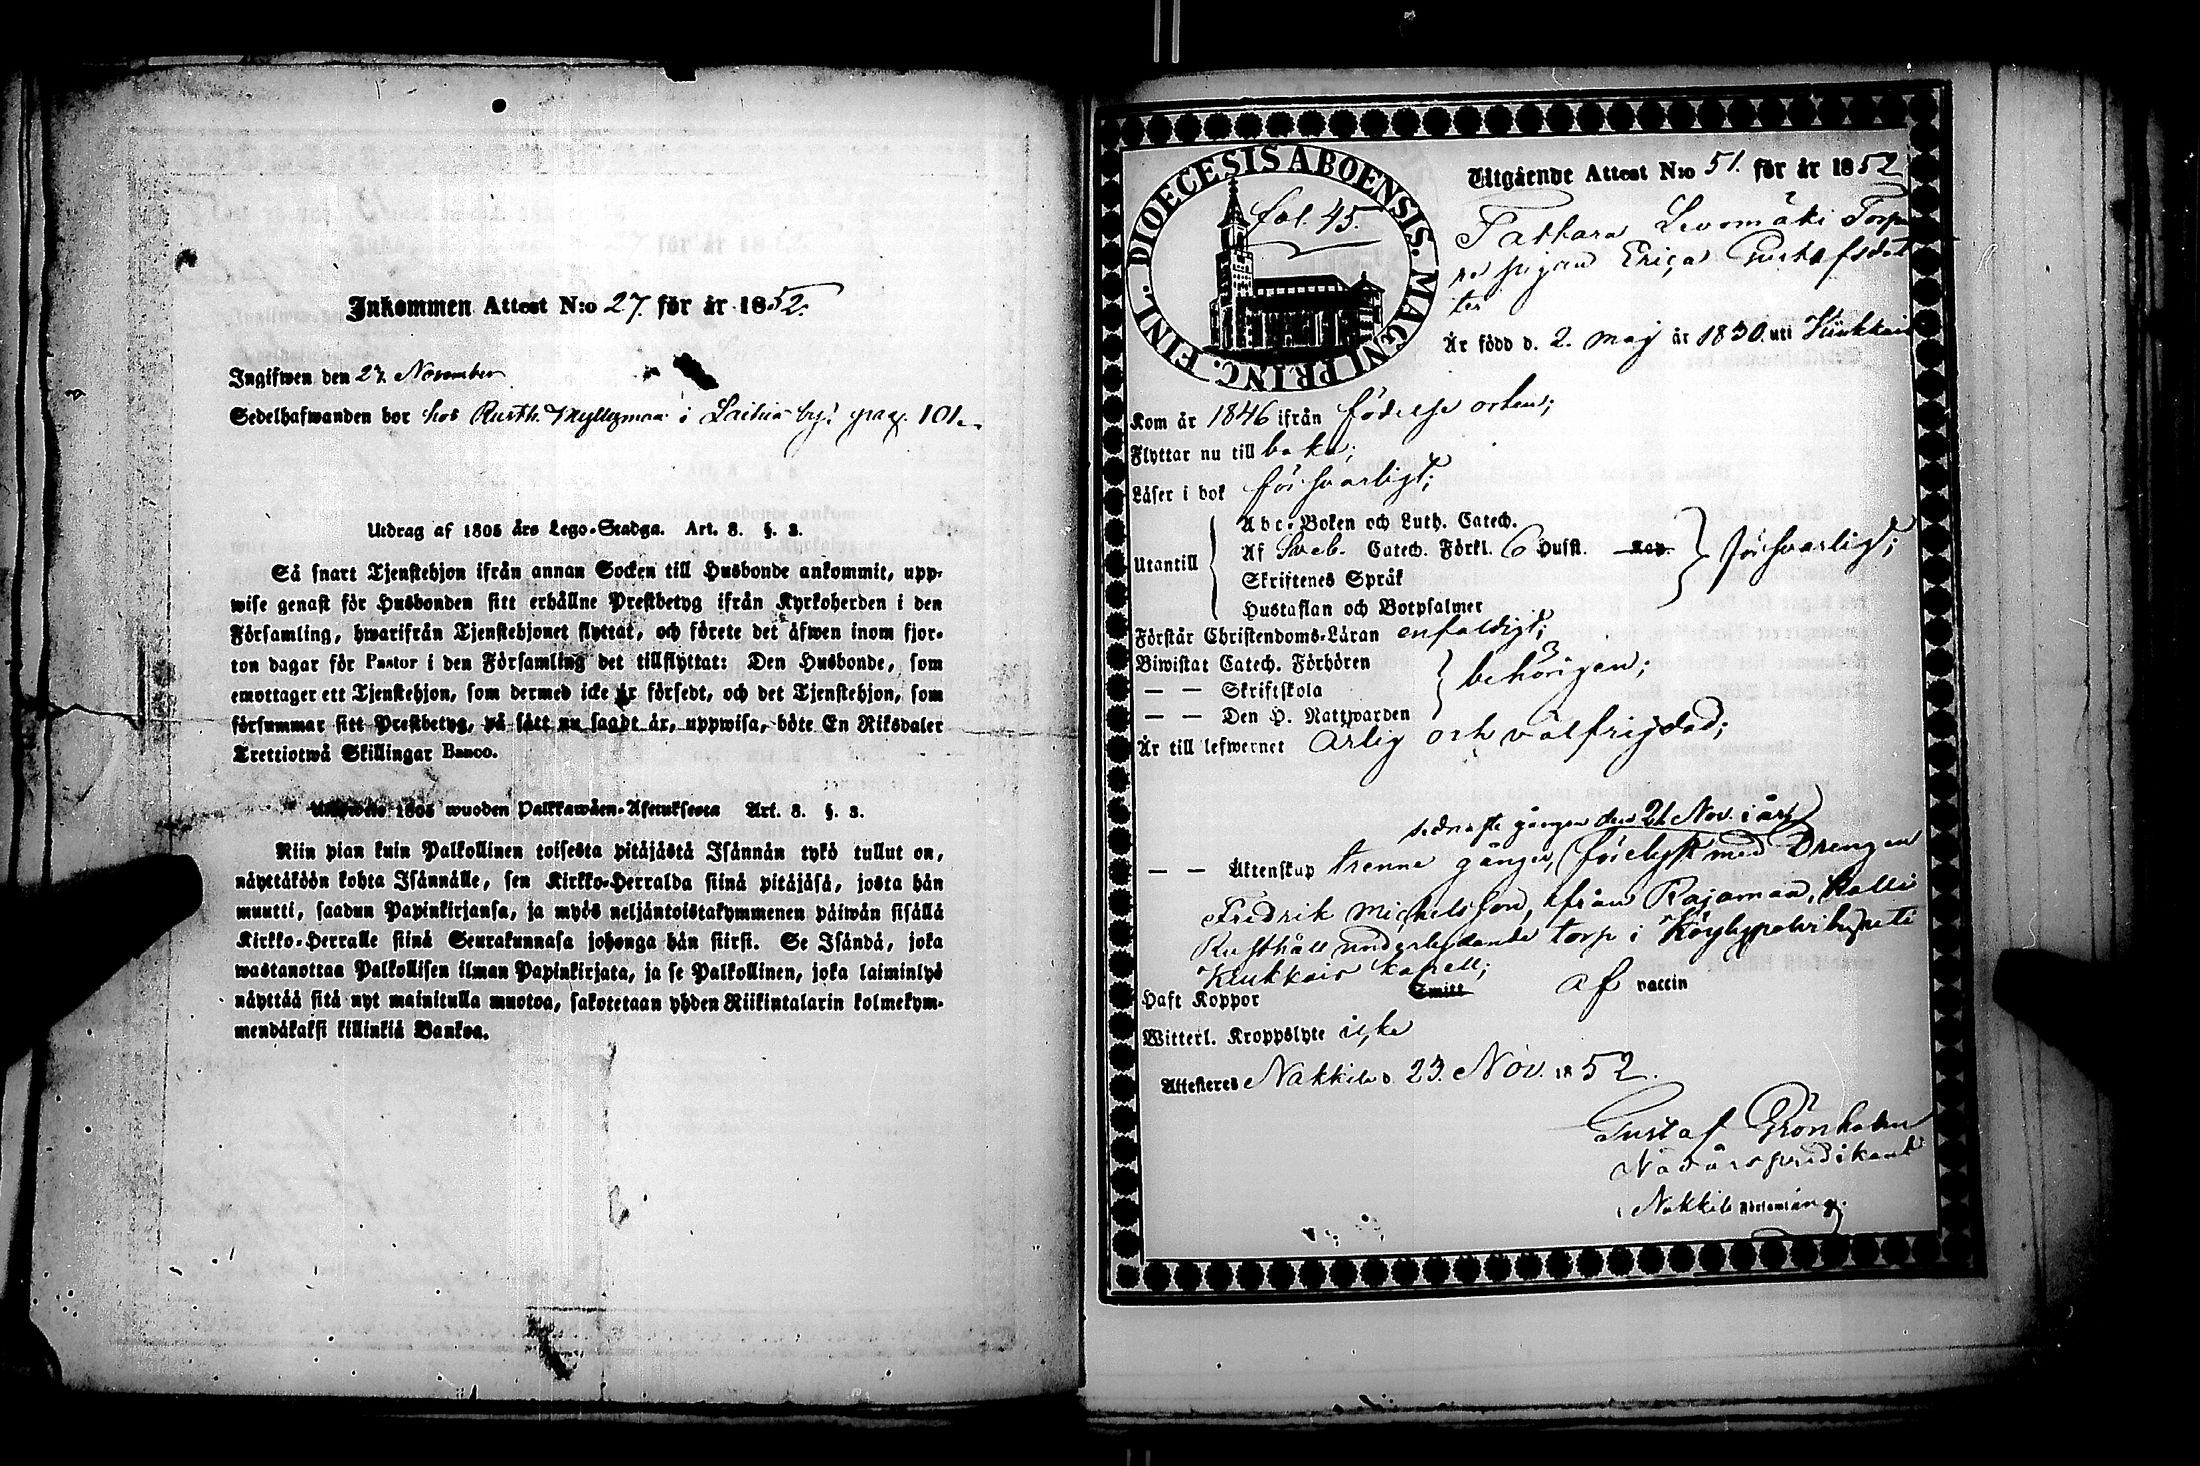 Inkommen Attest N:o 27. för år 1852.
Ingifwen den 27. November
Sedelhafwanden bor hos Rusth. Myllymaa i Laihia by! pag. 101.
Utdrag af 1805 års Lego-Stadga. Art. 8. §. 3.
Så snart Tjenstehjon ifrån annan Socken till Husbonde ankommit, upp-
wise genast för Husbonden sitt erhållne Prestbetyg ifrån Kyrkoherden i den
Församling, hwarifrån Tjenstehjonet flyttat, och förete det äfwen inom fjor-
ton dagar för Pastor i den Församling det tillflyttat: Den Husbonde, som
emottager ett Tjenstehjon, som dermed icke är försedt, och det Tjenstehjon, som
försummar sitt Prestbetyg, på sått nu sagdt är, uppwisa, böte En Riksdaler
Trettiotwå Skillingar Banco.
1805 wuoden Palkkawäen-Asetuksesta Art. 8. §. 3.
Niin pian kuin Palkollinen toisesta pitäjästä Isännän tykö tullut on,
näyttäköön kohta Isännälle, sen Kirkko-Herralda siinä pitäjäsä, josta hän
muutti, saadun Papinkirjansa, ja myös neljäntoistakymmenen päiwän sisällä
Kirkko-Herralle siinä Seurakunnasa johonga hän siirsi. Se Isändä, joka
wastanottaa Palkollisen ilman Papinkirjata, ja se Palkollinen, joka laiminlyö
näyttää sitä nyt mainitulla muotoa, sakotetaan yhden Riikintalarin kolmekym-
mendäkaksi killinkiä Bankoa.
DIOECESIS ABOENSIS. MAGNI PRINC. FINL.
fol. 45.
Utgående Attest N:o 51. för år 1852
Tattara Levomäki Torpa
re pigan Erica Gustafsdot
ter
Är född d. 2. Maj år 1830. uti Kiukkais
Kom år 1846 ifrån födelse orten;
Flyttar nu till baka;
Läser i bok försvarligt;
Utantill
Abc-Boken och Luth. Catech.
Af Sveb. Catech. Förkl. 6 Hufst. Kap.
Skriftenes Språk
Hustaflan och Botpsalmer
försvarligt;
Förstår Christendoms-Läran enfaldigt;
Biwistat Catech. Förhören
— — Skriftskola
— — Den H. Nattwarden
behörigen;
Är till lefwernet ärlig och välfrigdad;
sednaste gången den 21 Nov. i år
— — Äktenskap trenne gånger, förelyst med Drengen
Fredrik Michelsson, ifrån Rajamaa, Kalli
Rusthåll underlydande torp i Köylypolvi by uti
Kiukkais kapell;
Haft Koppor Smitt af vaccin
Witterl. Kroppslyte icke
Attesteres Nakkila d. 23. Nov. 1852.
Gustaf Grönholm
Nådårspredikant
i Nakkila Församling.